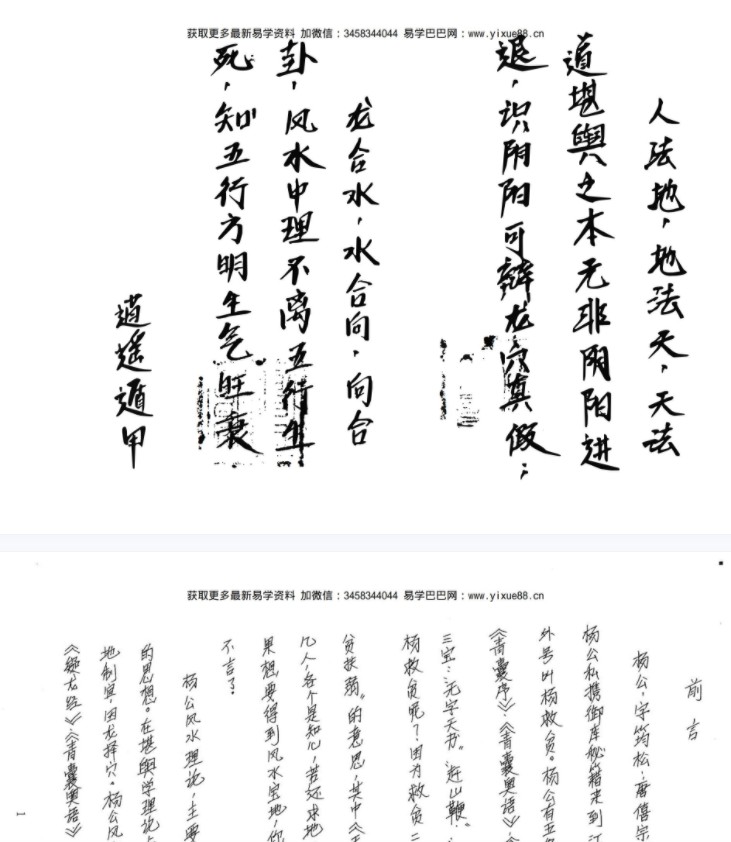 获取更多最新易学资料 加微信：3458344044 易学巴巴网：www.yixue88.cn
人法地，地法天，天法
道堪舆之本无非阴阳进
退，识阴阳可辩龙穴真假；
龙合水，水合向，向合
卦，风水中理不离五行生
死，知五行方明生气旺衰
逍遥遁甲
获取更多最新易学资料 加微信：3458344044 易学巴巴网：www.yixue88.cn
前言
杨公，字筠松，唐僖宗
杨公私携御库秘籍来到江
外号叫杨救贫。杨公有五
《青囊序》、《青囊奥语》、
三宝：“无字天书”、“赶山鞭”、
杨救贫呢？因为救贫二
贫扶弱”的意思，其中《
几人，各个是知
果想要得到风水宝地，你
不言了。
杨公风水理论，主要
的思想。在堪舆学理论
地制宜，因龙择穴。杨公风
《撼龙经》、《青囊奥语》
1